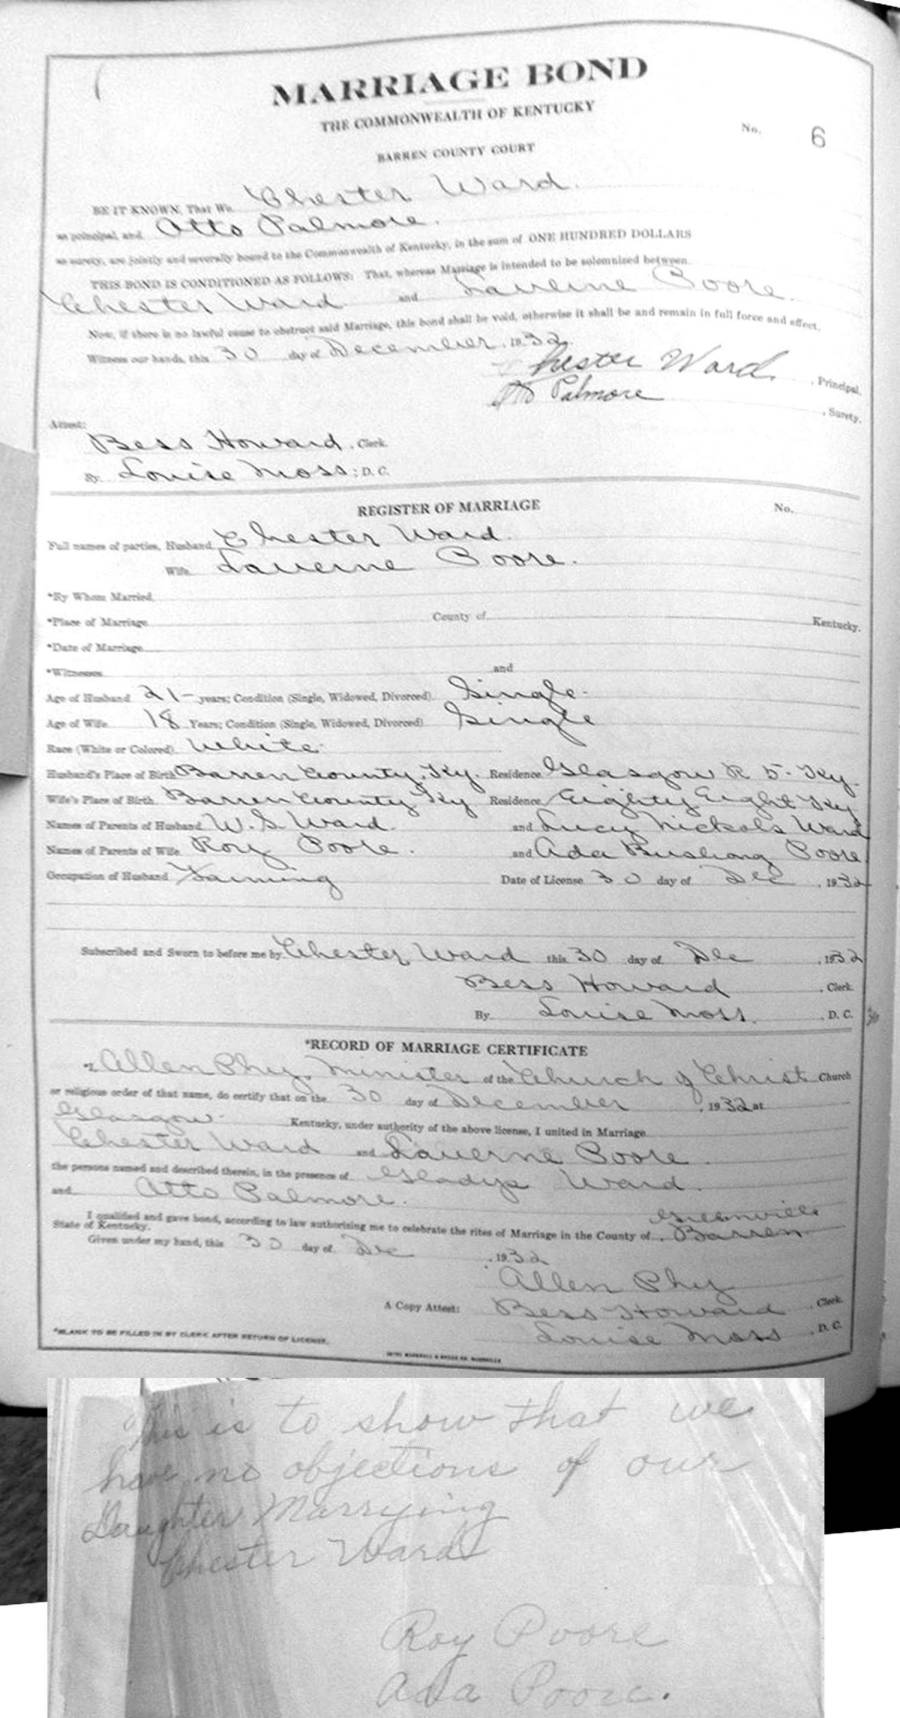 MARRIAGE BOND
THE COMMONWEALTH OF KENTUCKY
No. 6
BARREN COUNTY COURT
BE IT KNOWN, That We Chester Ward.
as principal, and Otto Palmore.
as surety, are jointly and severally bound to the Commonwealth of Kentucky, in the sum of ONE HUNDRED DOLLARS
THIS BOND IS CONDITIONED AS FOLLOWS: That, whereas Marriage is intended to be solemnized between
Chester Ward and Laverne Poore.
Now, if there is no lawful cause to obstruct said Marriage, this bond shall be void, otherwise it shall be and remain in full force and effect.
Witness our hands, this 30 day of December, 1932.
Chester Ward, Principal.
Otto Palmore, Surety.
Attest:
Bess Howard, Clerk.
By Louise Moss; D. C.
REGISTER OF MARRIAGE No.
Full names of parties, Husband Chester Ward.
Wife Laverne Poore.
*By Whom Married
*Place of Marriage County of Kentucky.
*Date of Marriage
*Witnesses and
Age of Husband 21 - years; Condition (Single, Widowed, Divorced) Single.
Age of Wife 18 Years; Condition (Single, Widowed, Divorced) Single
Race (White or Colored) White.
Husband's Place of Birth Barren County, Ky. Residence Glasgow R 5 - Ky.
Wife's Place of Birth Barren County Ky Residence Eighty Eight Ky
Names of Parents of Husband W. S. Ward. and Lucy Nickols Ward
Names of Parents of Wife Roy Poore. and Ada Bushong Poore
Occupation of Husband Farming Date of License 30 day of Dec, 1932
Subscribed and Sworn to before me by Chester Ward this 30 day of Dec, 1932
Bess Howard, Clerk.
By Louise Moss, D. C.
*RECORD OF MARRIAGE CERTIFICATE
*I, Allen Phy, Minister of the Church of Christ Church
or religious order of that name, do certify that on the 30 day of December, 1932 at
Glasgow. Kentucky, under authority of the above license, I united in Marriage
Chester Ward and Laverne Poore.
the persons named and described therein, in the presence of Gladys Ward.
and Otto Palmore.
Greenville
I qualified and gave bond, according to law authorizing me to celebrate the rites of Marriage in the County of Barren
State of Kentucky.
Given under my hand, this 30 day of Dec, 1932
Allen Phy
A Copy Attest: Bess Howard, Clerk.
Louise Moss, D. C.
*BLANK TO BE FILLED IN BY CLERK AFTER RETURN OF LICENSE.
This is to show that we
have no objections of our
Daughter Marrying
Chester Ward
Roy Poore
Ada Poore.